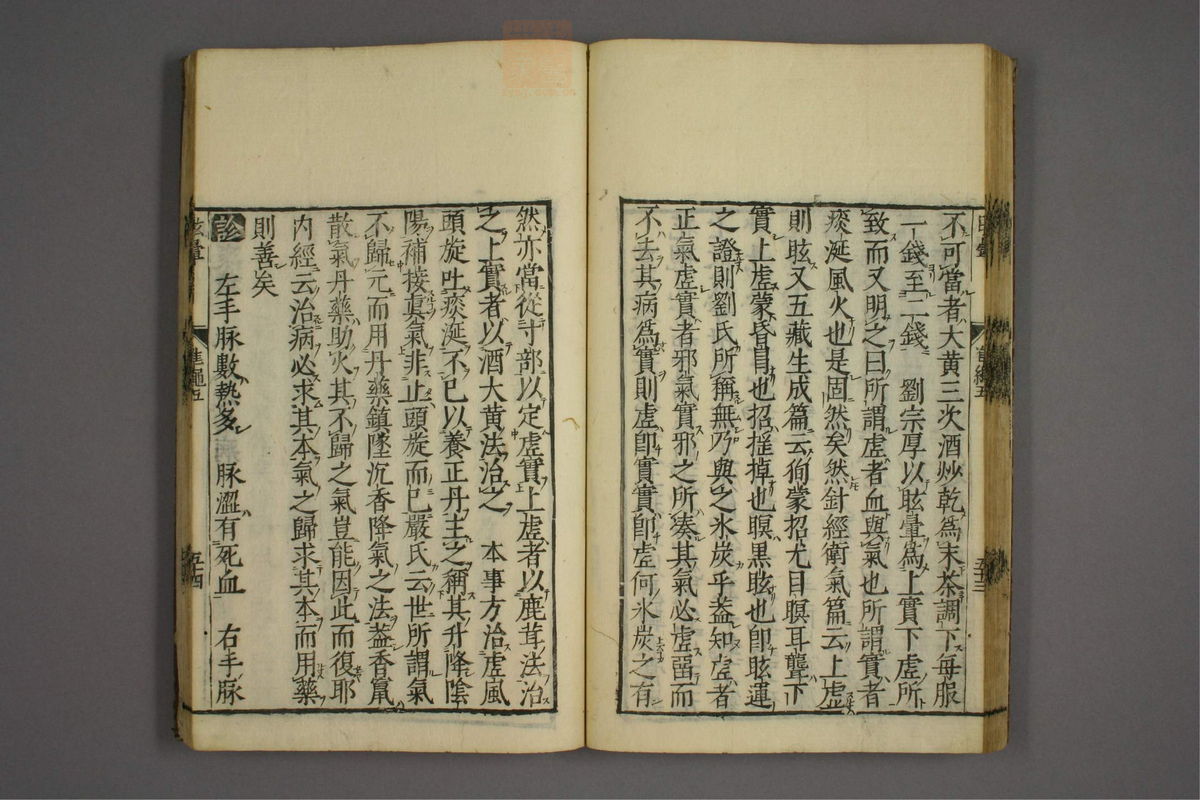 不可當者大黃三次酒炒乾爲末茶調下每服
一錢至二錢　劉宗厚以眩暈爲上實下虛所
致而又明之曰所謂虛者血與氣也所謂實者
痰涎風火也是固然矣然針經衛氣篇云上虛
則眩又五藏生成篇云徇蒙招尤目瞑耳聾下
實上虛蒙昏冒也招搖掉也瞑黑眩也卽眩運
之證則劉氏所稱無乃與之氷炭乎葢知虛者
正氣虛實者邪氣實邪之所湊其氣必虛畱而
不去其病爲實則虛卽實實卽虛何氷炭之有
然亦當從寸部以定虛實上虛者以鹿茸法治
之上實者以酒大黃法治之　本事方治虛風
頭旋吐痰涎不已以養正丹主之稱其升降陰
陽補接眞氣非止頭旋而已嚴氏云世所謂氣
不歸元而用丹藥鎮墜沉香降氣之法葢香竄
散氣丹藥助火其不歸之氣豈能因此而復耶
內經云治病必求其本氣之歸求其本而用藥
則善矣
診　左手脉數熱多　脉澀有死血　右手脉
眩暈
準繩五
五十四